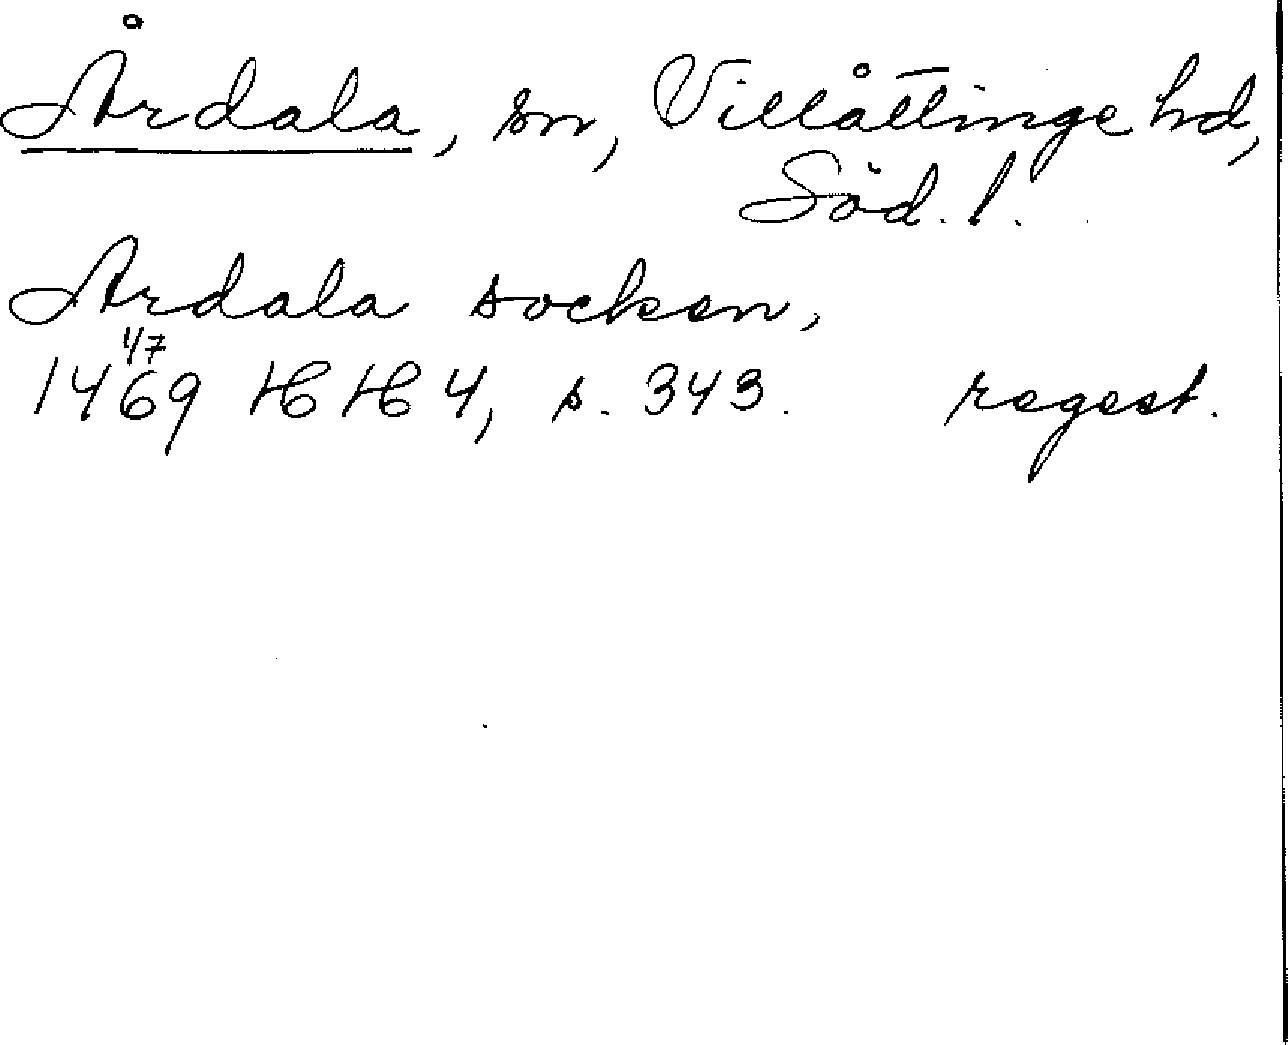 Årdala, sn, Villåttinge hd,
Söd. l.
Ardala socken,
1/7
1469 HH 4, s. 343. regest.